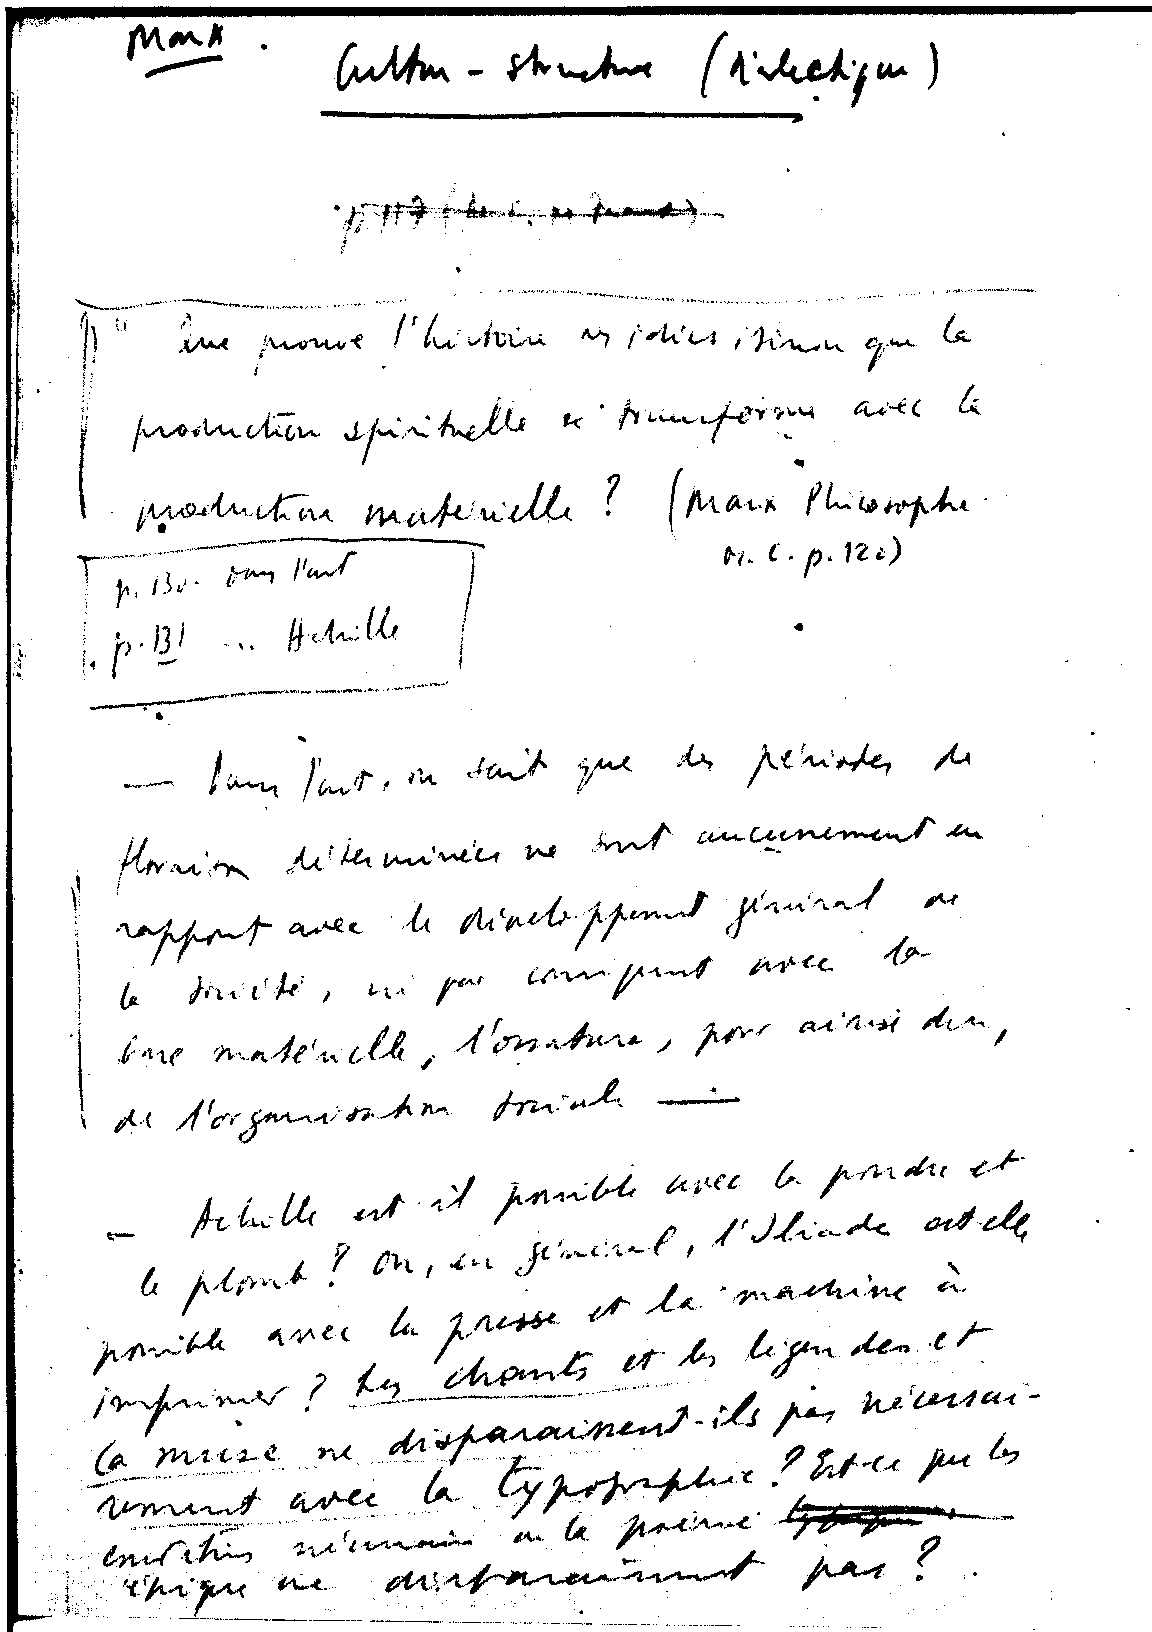 Marx.
Culture - structure (dialectique)
p. 117
" Que prouve l'histoire des idées, sinon que la
production spirituelle se transforme avec la
production matérielle ? (Marx Philosophe
p. 120)
p. 130. dans l'art
p. 131 ... Achille
— Dans l'art, on sait que des périodes de
floraison déterminées ne sont aucunement en
rapport avec le développement général de
la société, ni par conséquent avec la
base matérielle, l'ossature, pour ainsi dire,
de l'organisation sociale —
— Achille est il possible avec la poudre et
le plomb ? Ou, en général, l'Iliade est elle
possible avec la presse et la machine à
imprimer ? Les chants et les légendes et
la muse ne disparaissent-ils pas nécessai-
rement avec la typographie ? Est-ce que les
conditions nécessaires de la poésie
épique ne disparaissent pas ?